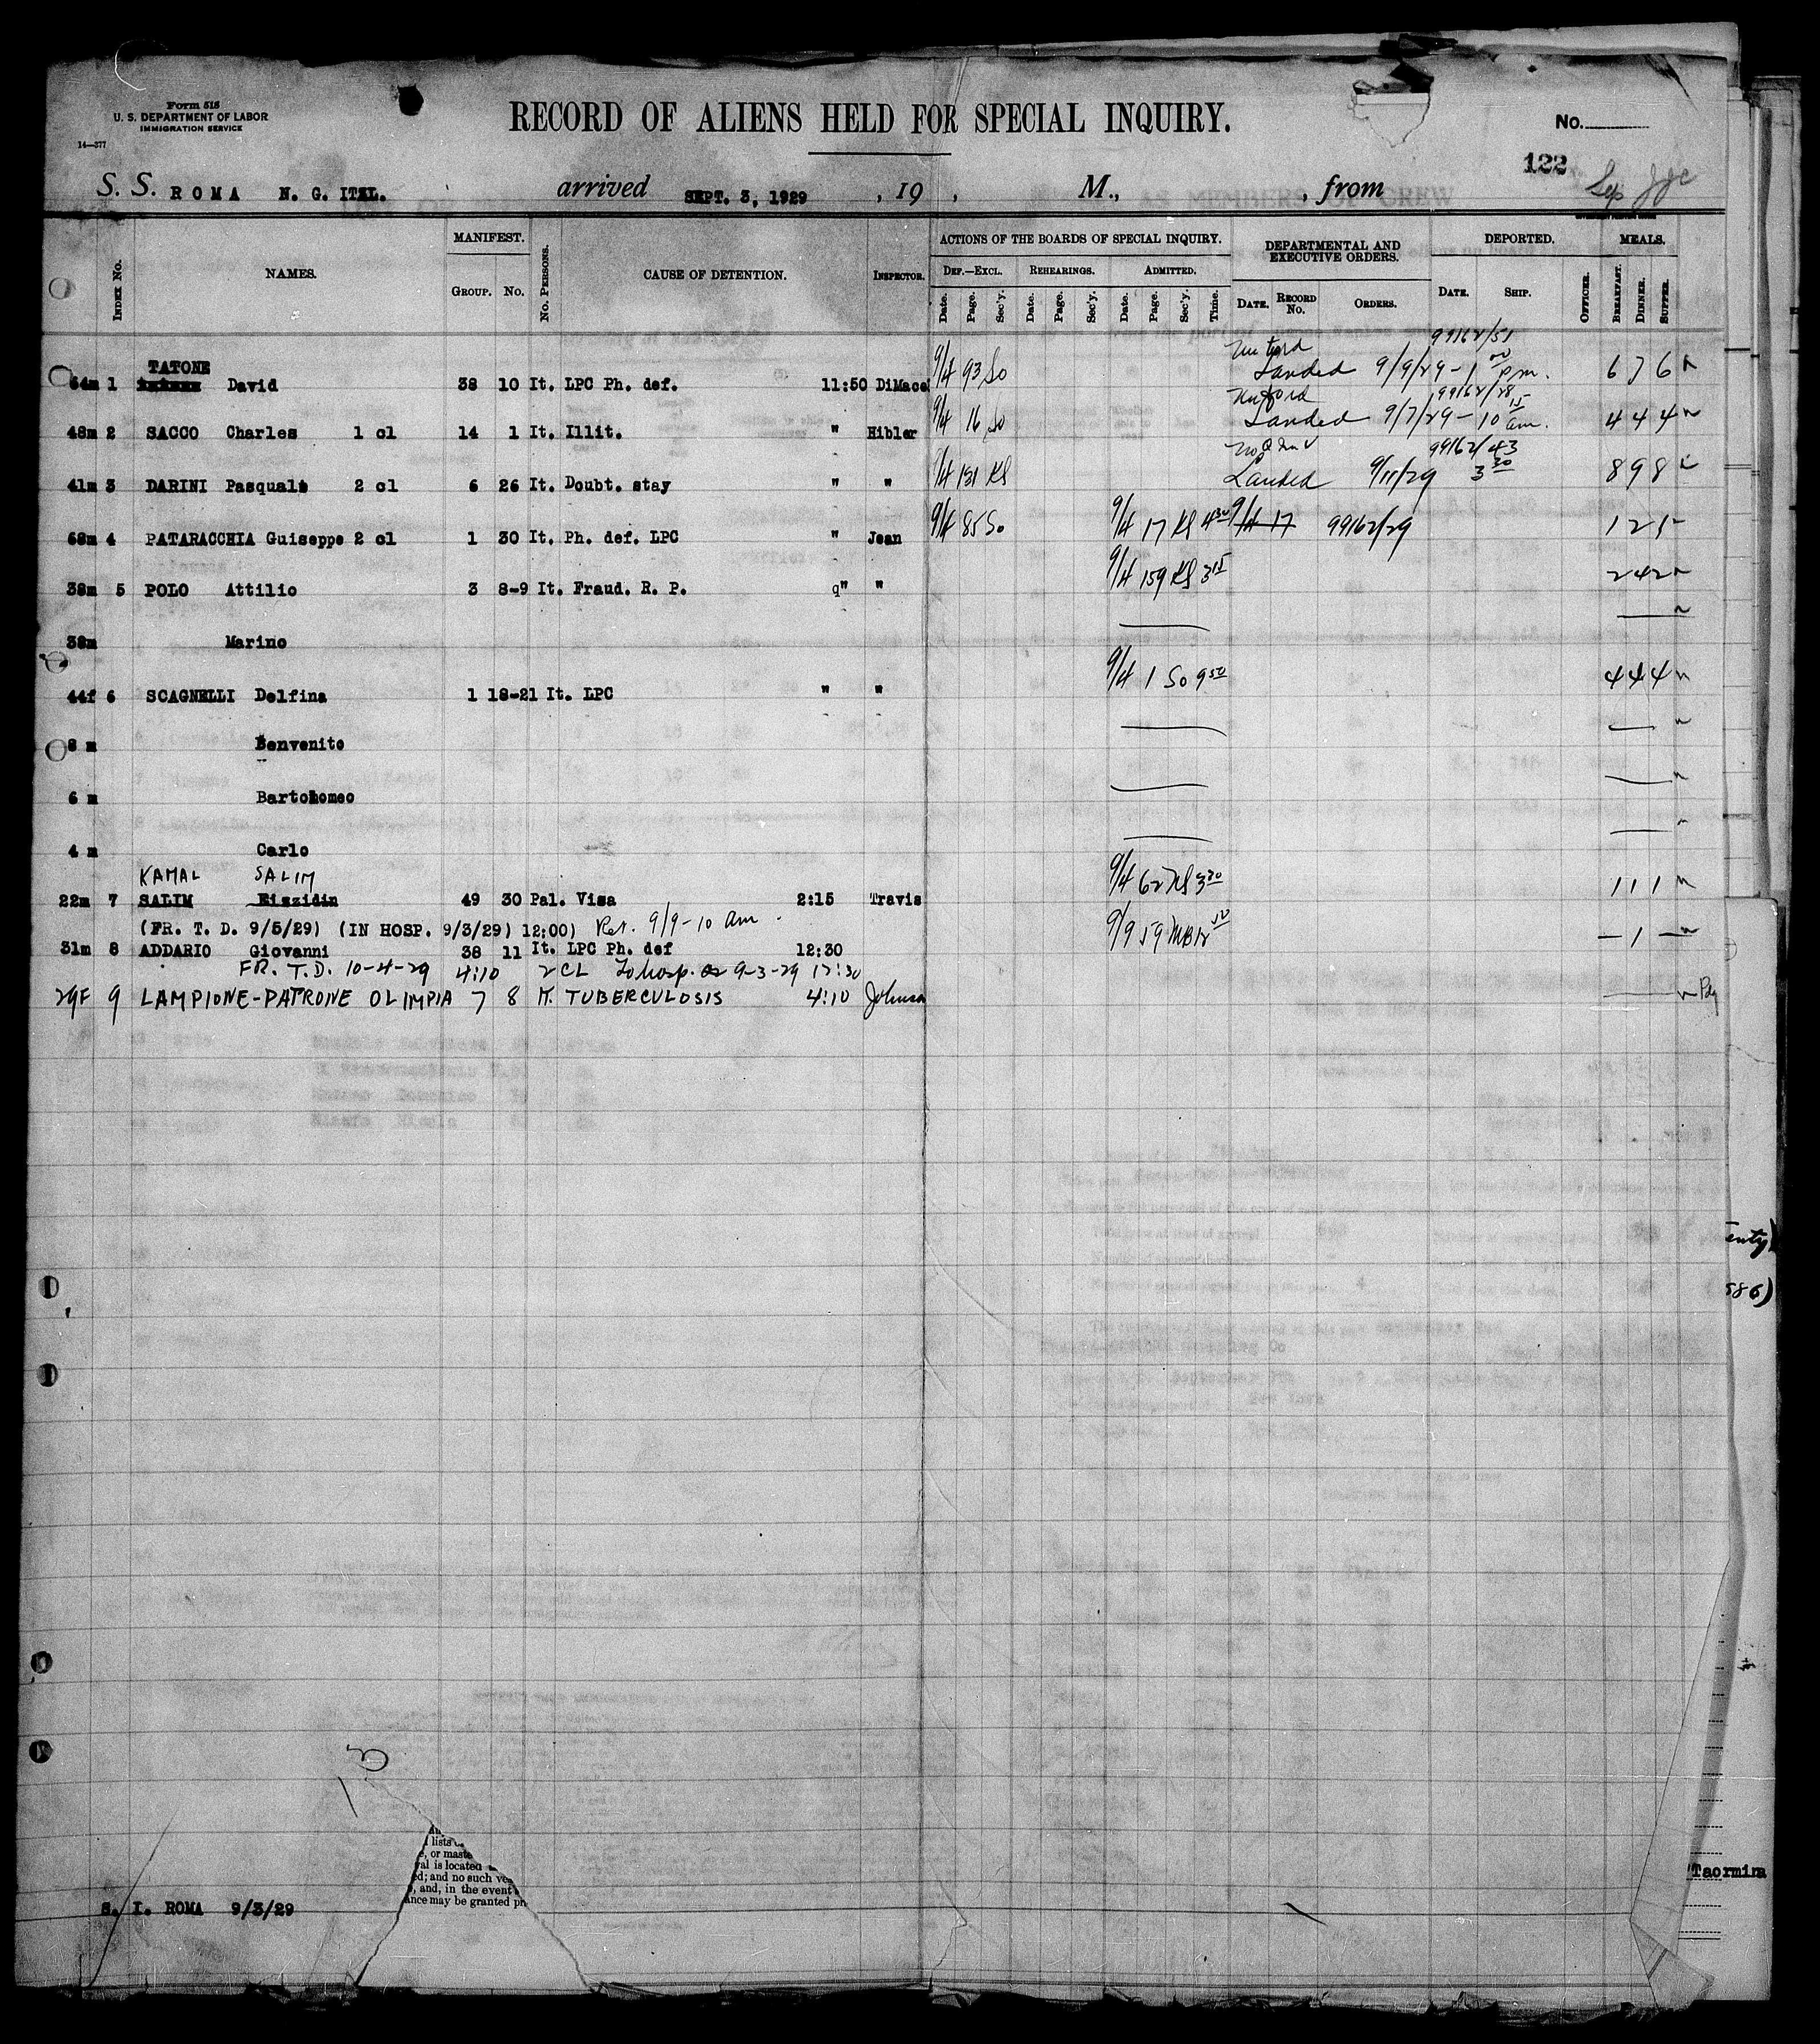 Form 515
U. S. DEPARTMENT OF LABOR
IMMIGRATION SERVICE
14—377
RECORD OF ALIENS HELD FOR SPECIAL INQUIRY.
No.
122
S. S. ROMA N. G. ITAL. arrived SEPT. 3, 1929 , 19 , M., , from
INDEX No. NAMES. MANIFEST. GROUP. No. No. PERSONS. CAUSE OF DETENTION. INSPECTOR. ACTIONS OF THE BOARDS OF SPECIAL INQUIRY. DEF.—EXCL. REHEARINGS. ADMITTED. DEPARTMENTAL AND EXECUTIVE ORDERS. DEPORTED. MEALS.
Date. Page. Sec'y. Date. Page. Sec'y. Date. Page. Sec'y. Time. DATE. RECORD No. ORDERS. DATE. SHIP. OFFICER. BREAKFAST. DINNER. SUPPER.
99162/51
TATONE
54m 1 David 38 10 It. LPC Ph. def. 11:50 DiMace 9/4 93 So Landed 9/9/29 - 1 00 P.m. 6 7 6
99162/28
48m 2 SACCO Charles 1 cl 14 1 It. Illit. " Hibler 9/4 16 So Landed 9/7/29 - 10 15 am. 4 4 4
99162/43
41m 3 DARINI Pasquale 2 cl 6 26 It. Doubt. stay " " 9/4 131 KS Landed 9/11/29 3 30 8 9 8
68m 4 PATARACCHIA Guiseppe 2 cl 1 30 It. Ph. def. LPC " Jean 9/4 85 So 9/4 17 KS 4 30 9/4 17 99162/29 1 2 1
38m 5 POLO Attilio 3 8-9 It. Fraud. R. P. q" " 9/4 159 KS 3 15 2 4 2
38m Marino
44f 6 SCAGNELLI Delfina 1 18-21 It. LPC " " 9/4 1 So 9 50 4 4 4
8 m Benvenito
6 m Bartolomeo
4 m Carlo
KAMAL SALIM
22m 7 SALIM Eiszidin 49 30 Pal. Visa 2:15 Travis 9/4 62 KS 3 30 1 1 1
(FR. T. D. 9/5/29) (IN HOSP. 9/3/29) 12:00) Ret. 9/9-10 am.
31m 8 ADDARIO Giovanni 38 11 It. LPC Ph. def 12:30 9/9 59 — 1 —
FR. T.D. 10-4-29 4:10 2 CL To hosp. 9-3-29 12:30
29F 9 LAMPIONE-PATRONE OLIMPIA 7 8 It. TUBERCULOSIS 4:10 Johnson
enty)
586)
13
lists
e, or maste
val is located
ed; and no such ve
, and, in the event
ance may be granted pr
Taormina
S. I. ROMA 9/3/29